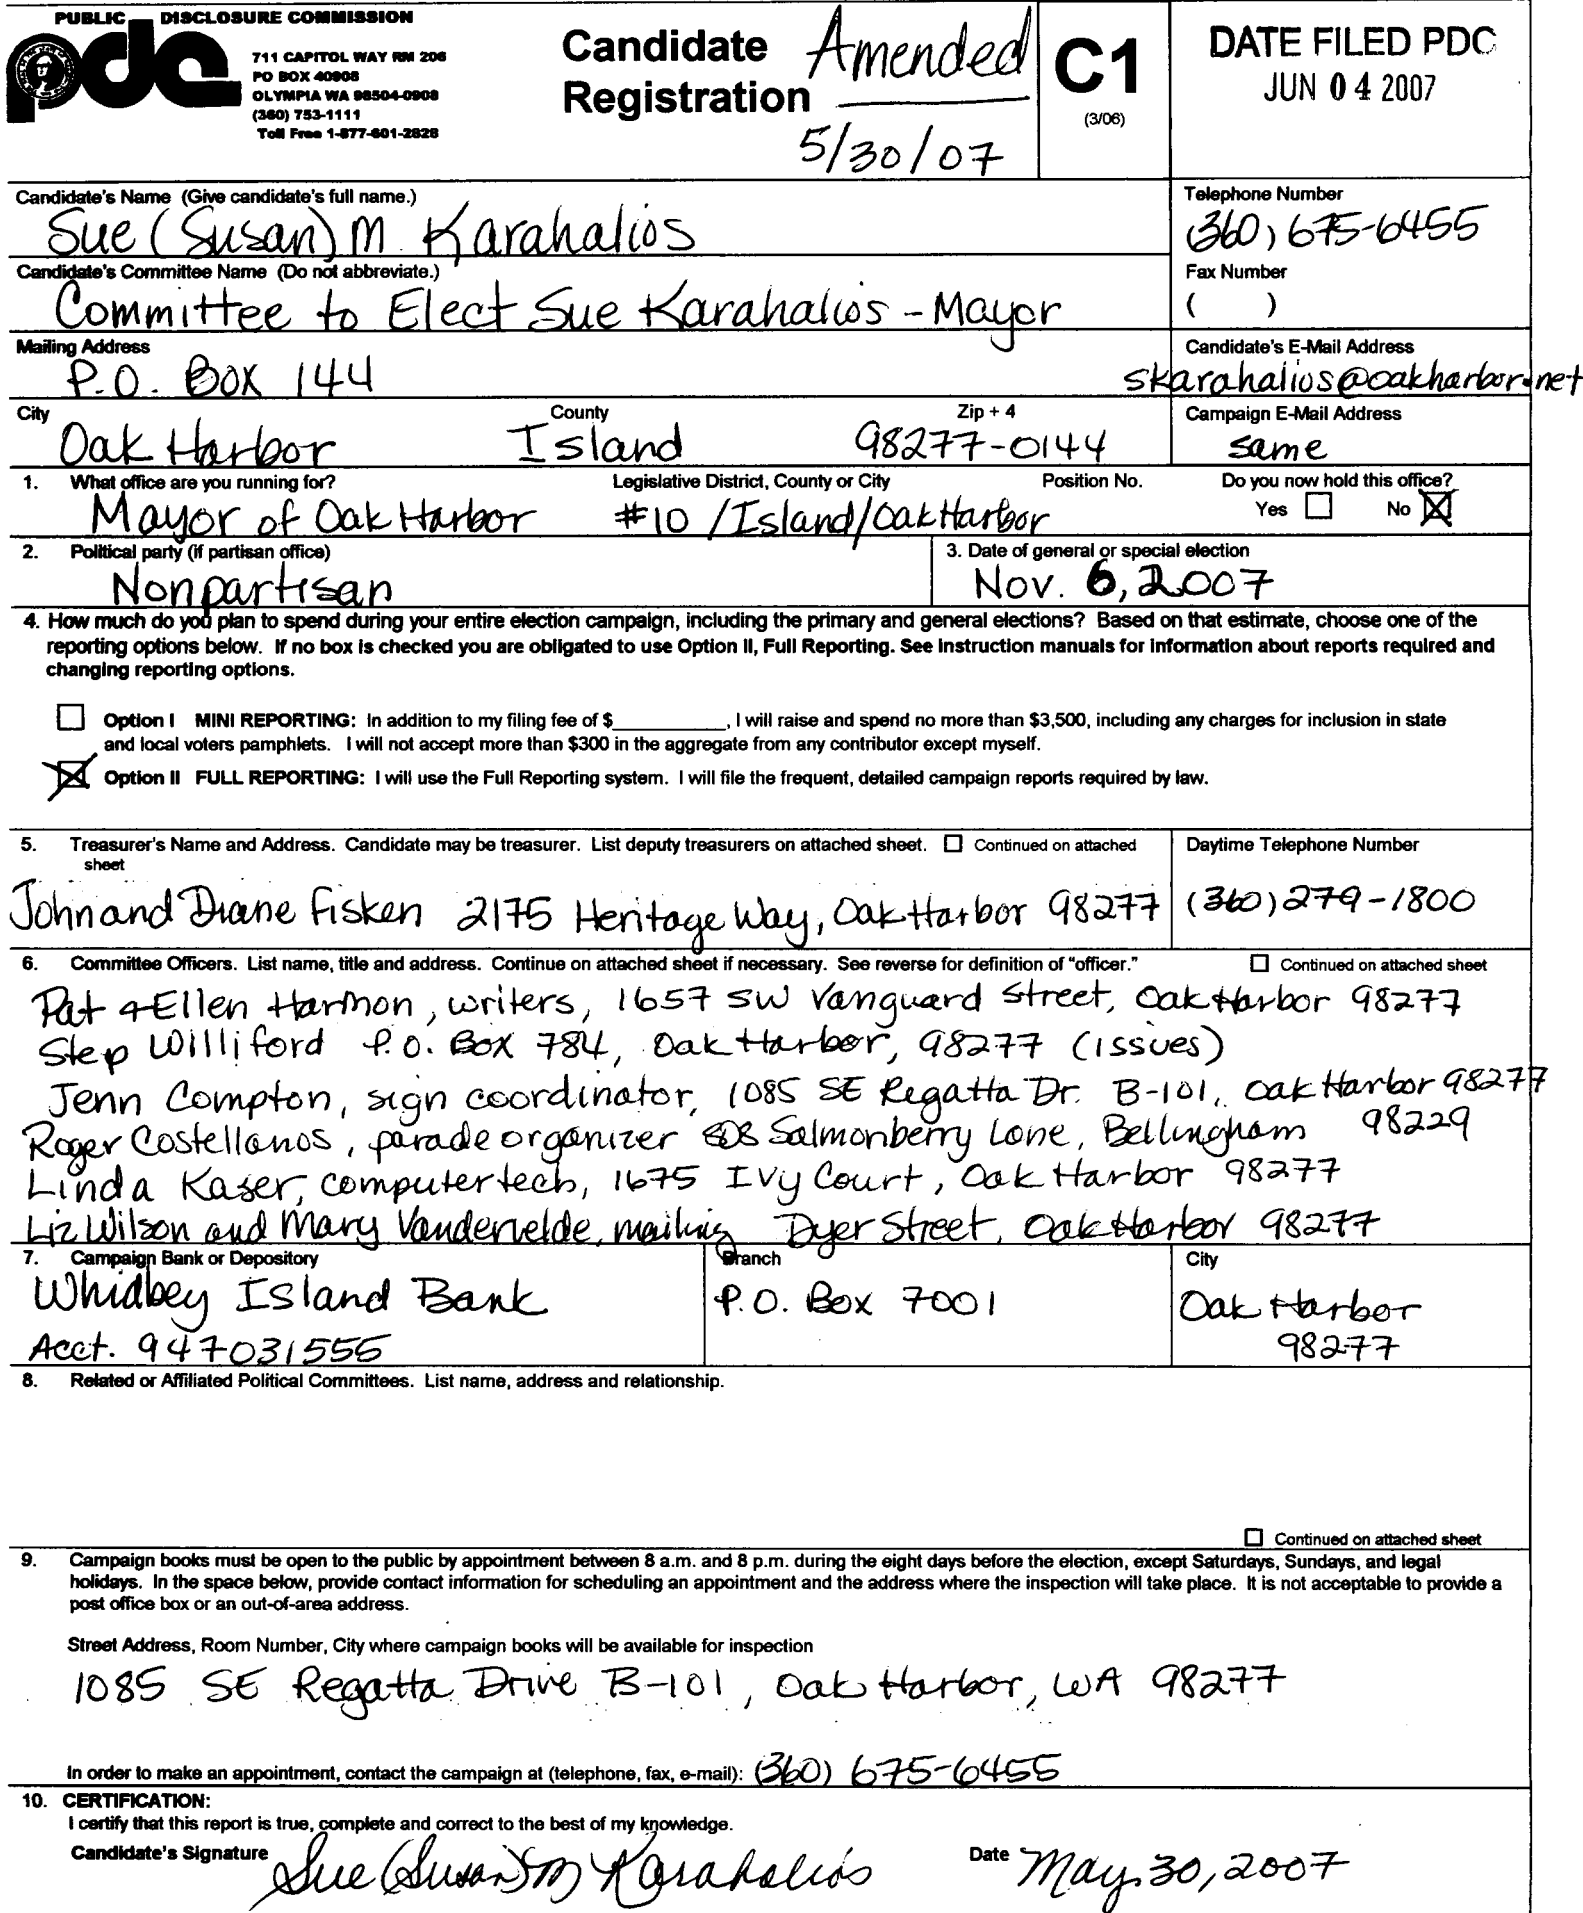 PUBLIC DISCLOSURE COMMISSION
pdc
711 CAPITOL WAY RM 206
PO BOX 40908
OLYMPIA WA 98504-0908
(360) 753-1111
Toll Free 1-877-601-2828
Candidate Registration
Amended
5/30/07
C1
(3/06)
DATE FILED PDC
JUN 04 2007
Candidate's Name (Give candidate's full name.)
Sue (Susan) M Karahalios
Telephone Number
(360) 675-6455
Candidate's Committee Name (Do not abbreviate.)
Committee to Elect Sue Karahalios - Mayor
Fax Number
( )
Mailing Address
P.O. Box 144
Candidate's E-Mail Address
skarahalios@oakharbor.net
City County Zip + 4
Oak Harbor Island 98277-0144
Campaign E-Mail Address
same
1. What office are you running for? Legislative District, County or City Position No. Do you now hold this office?
Mayor of Oak Harbor #10 /Island/Oak Harbor Yes No
2. Political party (if partisan office)
Nonpartisan
3. Date of general or special election
Nov. 6, 2007
4. How much do you plan to spend during your entire election campaign, including the primary and general elections? Based on that estimate, choose one of the
reporting options below. If no box is checked you are obligated to use Option II, Full Reporting. See instruction manuals for information about reports required and
changing reporting options.
Option I MINI REPORTING: In addition to my filing fee of $__________, I will raise and spend no more than $3,500, including any charges for inclusion in state
and local voters pamphlets. I will not accept more than $300 in the aggregate from any contributor except myself.
Option II FULL REPORTING: I will use the Full Reporting system. I will file the frequent, detailed campaign reports required by law.
5. Treasurer's Name and Address. Candidate may be treasurer. List deputy treasurers on attached sheet. Continued on attached
sheet
John and Diane Fisken 2175 Heritage Way, Oak Harbor 98277
Daytime Telephone Number
(360) 279-1800
6. Committee Officers. List name, title and address. Continue on attached sheet if necessary. See reverse for definition of "officer." Continued on attached sheet
Pat & Ellen Harmon, writers, 1657 SW Vanguard Street, Oak Harbor 98277
Step Williford P.O. Box 784, Oak Harbor, 98277 (issues)
Jenn Compton, sign coordinator, 1085 SE Regatta Dr. B-101, Oak Harbor 98277
Roger Costellanos, parade organizer Salmonberry Lane, Bellingham 98229
Linda Kaser, computer tech, 1675 Ivy Court, Oak Harbor 98277
Liz Wilson and Mary Vandervelde, mailing Dyer Street, Oak Harbor 98277
7. Campaign Bank or Depository
Whidbey Island Bank
Acct. 947031556
Branch
P.O. Box 7001
City
Oak Harbor
98277
8. Related or Affiliated Political Committees. List name, address and relationship.
Continued on attached sheet
9. Campaign books must be open to the public by appointment between 8 a.m. and 8 p.m. during the eight days before the election, except Saturdays, Sundays, and legal
holidays. In the space below, provide contact information for scheduling an appointment and the address where the inspection will take place. It is not acceptable to provide a
post office box or an out-of-area address.
Street Address, Room Number, City where campaign books will be available for inspection
1085 SE Regatta Drive B-101, Oak Harbor, WA 98277
In order to make an appointment, contact the campaign at (telephone, fax, e-mail): (360) 675-6455
10. CERTIFICATION:
I certify that this report is true, complete and correct to the best of my knowledge.
Candidate's Signature Sue (Susan) M Karahalios Date May 30, 2007